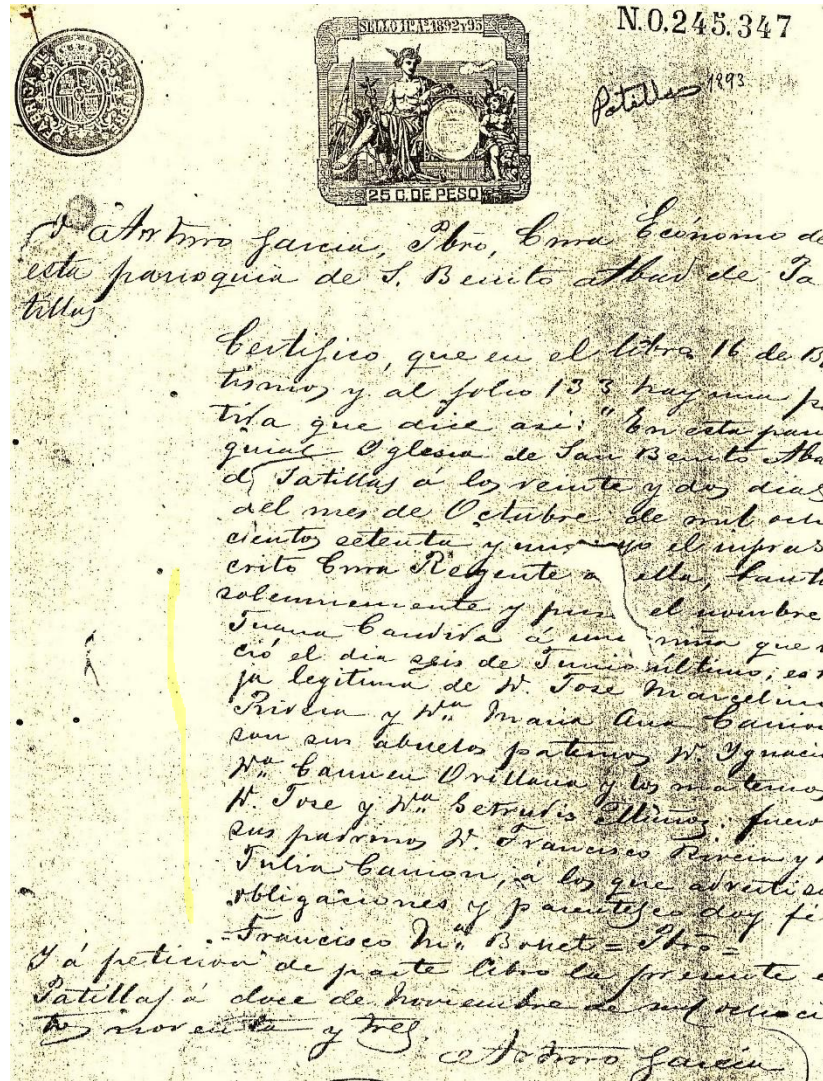 SELLO 11º Aº 1892 Y 93
N.0.245.347
FABRICA NAL DEL TIMBRE
Patillas 1893
25 C. DE PESO
D. Arturo Garcia, Pbro, Cura Ecónomo de
esta parroquia de S. Benito Abad de Pa
tillas
Certifico, que en el libro 16 de B
tismos y al folio 133 hay una pa
tida que dice asi: "En esta parro
quial Yglesia de San Benito Aba
d Patillas á los veinte y dos dias
del mes de Octubre de mil ocho
cientos setenta y uno yo el infras
crito Cura Regente ella, bauti
solemnemente y puse el nombre
Juana Candida á una niña que n
ció el dia seis de Junio último, es
ja legitima de D. Jose Marcelino
Rivera y Dª Maria Ana Camion
son sus abuelos paternos D. Ygnacio
Dª Carmen Orillana y los maternos
D. Jose y Dª Getrudis Muñoz: fuero
sus padrinos D. Francisco Rivera y
Julia Camion, á los que advertí su
obligaciones y parentesco doy fé
= Francisco Mª Bonet = Pbro =
Y á peticion de parte libro la presente e
Patillas á doce de Noviembre de mil ochoci
tos noventa y tres.
Arturo Garcia